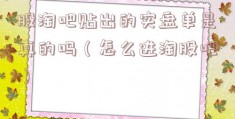 股淘吧贴出的实盘单是
真的吗（怎么进淘股吧